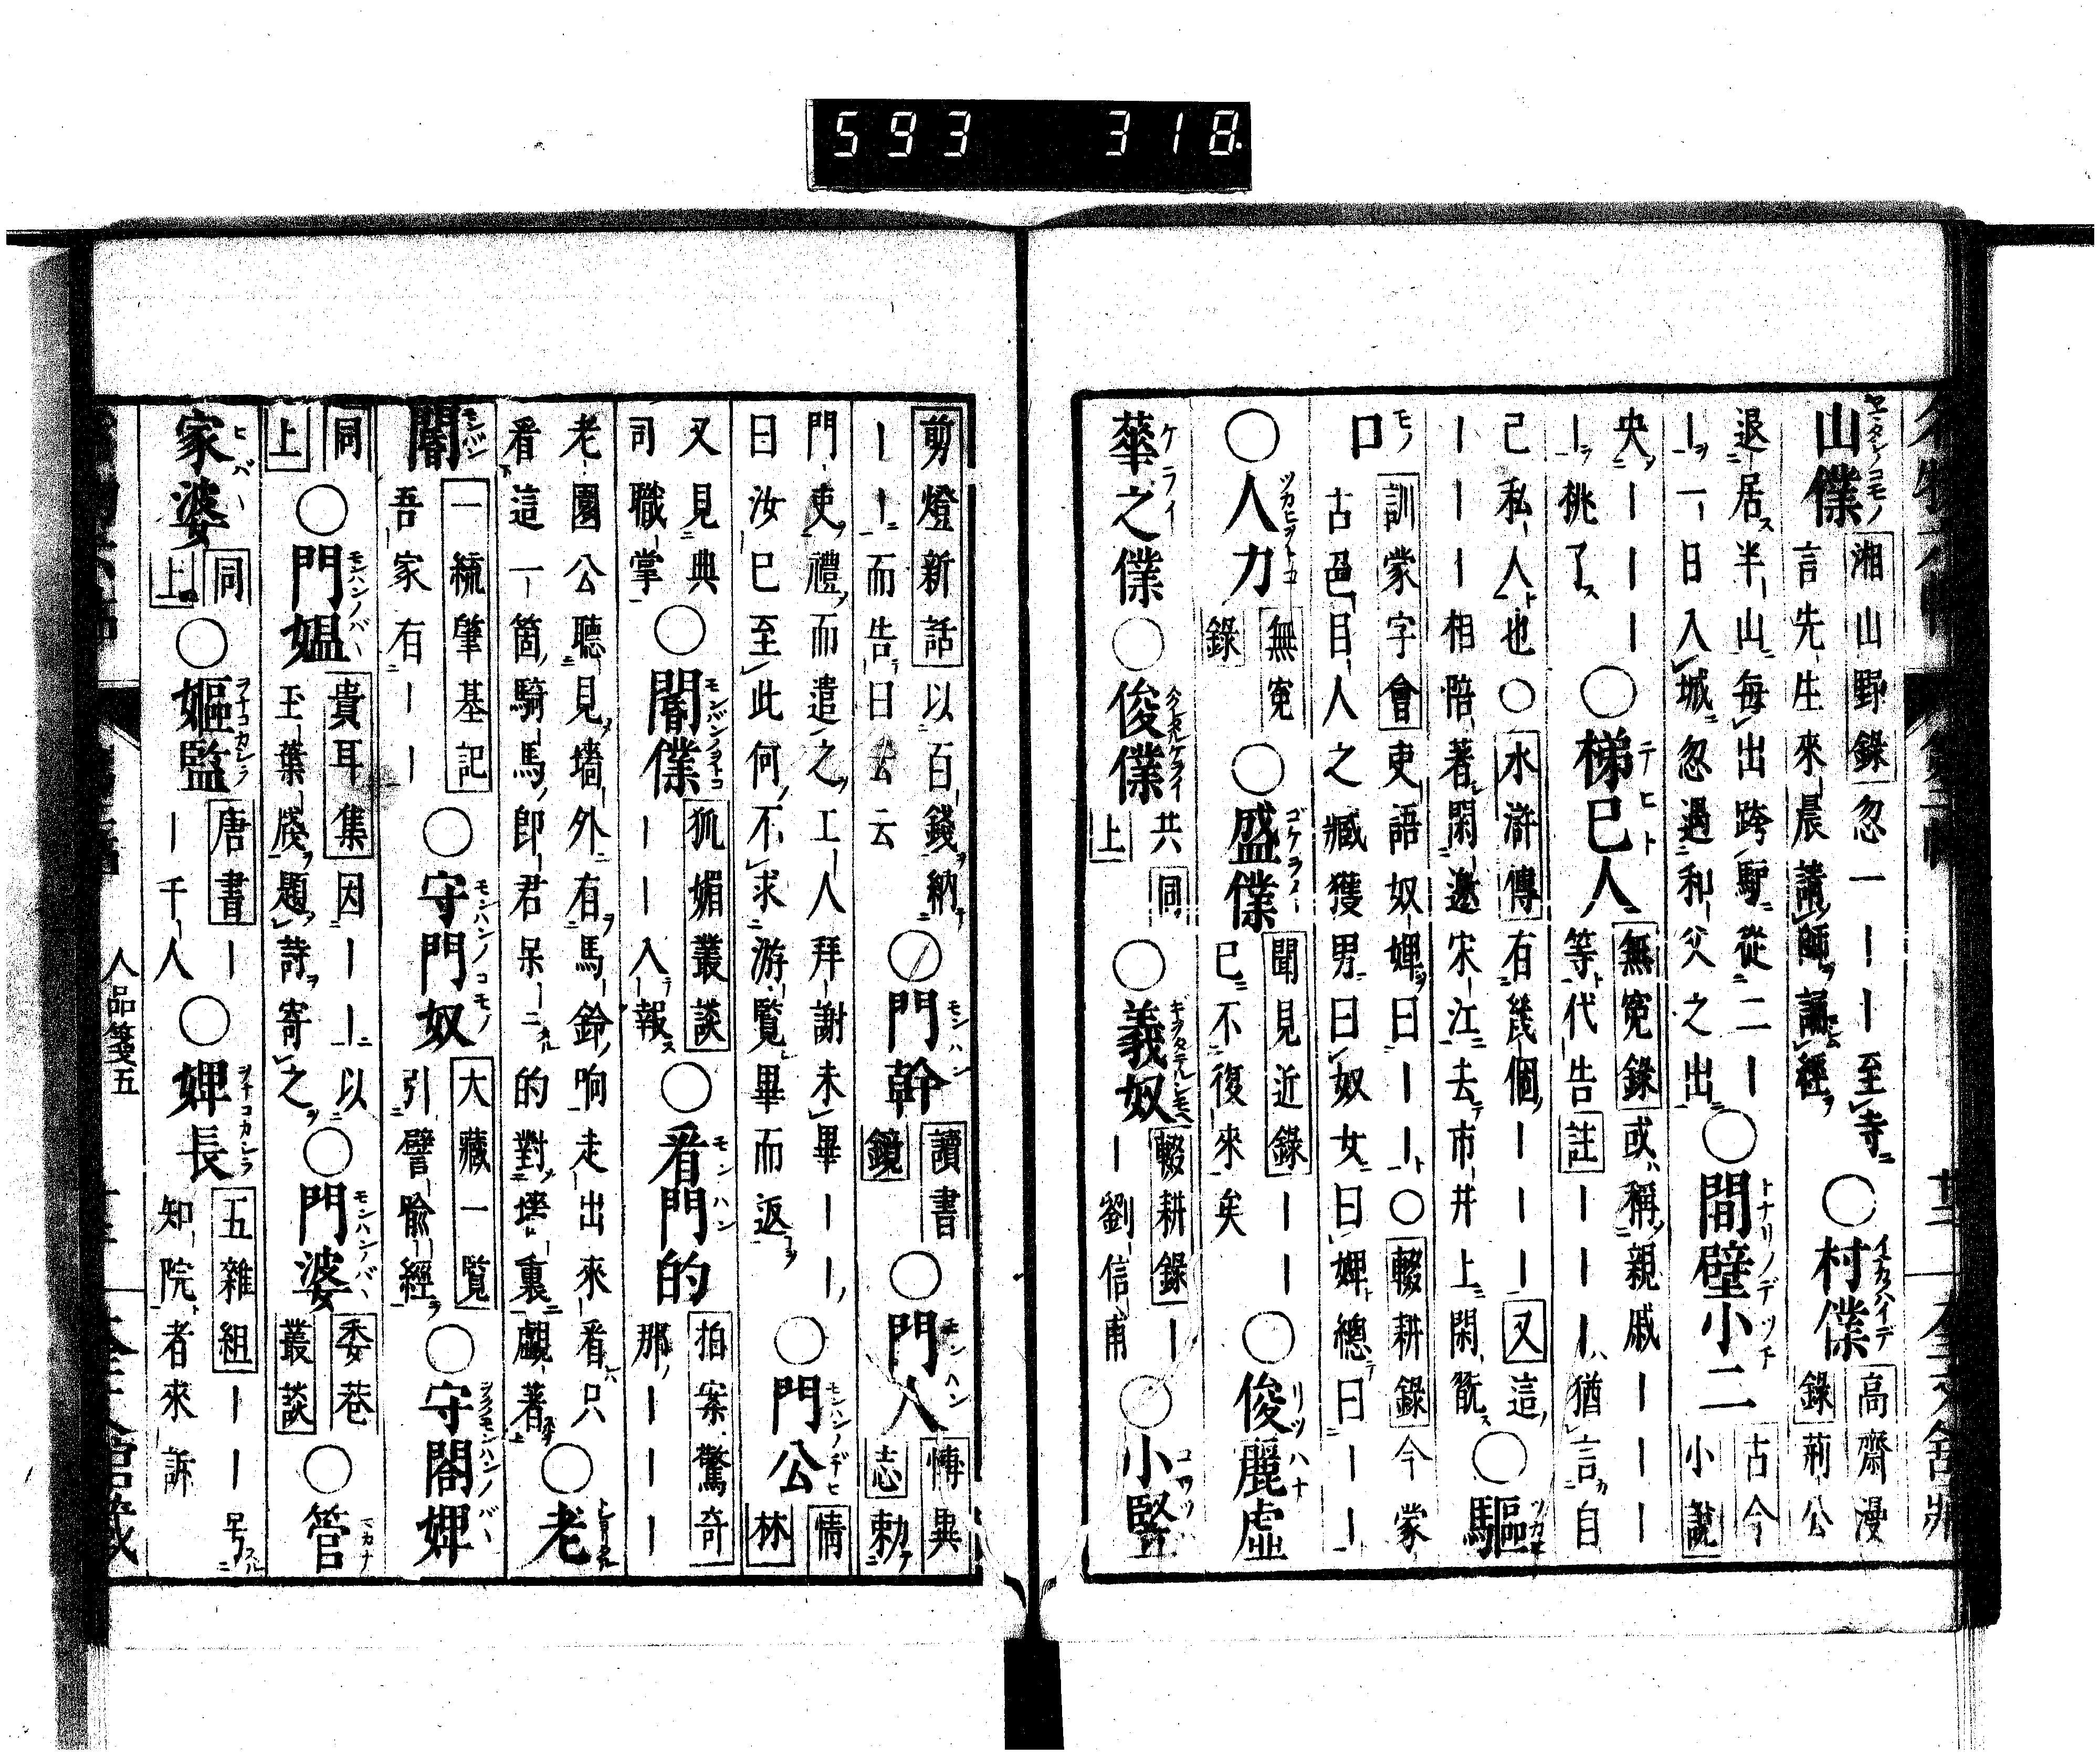 593 318
山僕 湘山野錄 忽一｜｜至寺 言先生來晨請師誦經 ○村僕 高齋漫錄 荊公
退居半山每出跨驢從二｜｜一日入城忽過和父之出 ○間壁小二 古今小說
央｜｜｜｜桃了 ○梯已人 無寃錄 或稱親戚｜｜｜等代告 註 ｜｜｜猶言自
己私人也 ○ 水滸傳 有幾個｜｜｜ 又 這｜｜｜｜相陪著閑邀宋江去市井上閑翫 ○驅
口 訓蒙字會 吏語奴婢曰｜｜ ○ 輟耕錄 今蒙古色目人之臧獲男曰奴女曰婢總曰｜｜
○人力 無寃錄 ○盛僕 聞見近錄 ｜｜已不復來矣 ○俊麗虛
華之僕 ○俊僕 共同上 ○義奴 輟耕錄 ｜｜劉信甫 ○小竪
剪燈新話 以百錢納｜｜而告曰云云 ○門幹 讀書鏡 ○門人 博異志 勅
門吏禮而遣之工人拜謝未畢｜｜曰汝已至此何不求游覽畢而返 ○門公 情林
又見典司職掌 ○閽僕 狐媚叢談 ｜｜入報 ○看門的 拍案驚奇 那｜｜｜
老園公聽見墻外有馬鈴响走出來看只看這一箇騎馬郎君呆的對墻裏覷著 ○老
閽 一統肇基記 吾家有｜｜ ○守門奴 大藏一覽 引譬喻經 ○守閤婢
同上 ○門媼 貴耳集 因｜｜以玉葉牋題詩寄之 ○門婆 委巷叢談 ○管
家婆 同上 ○嫗監 唐書 ｜｜千人 ○婢長 五雜組 ｜｜号知院者來訴
人品箋五